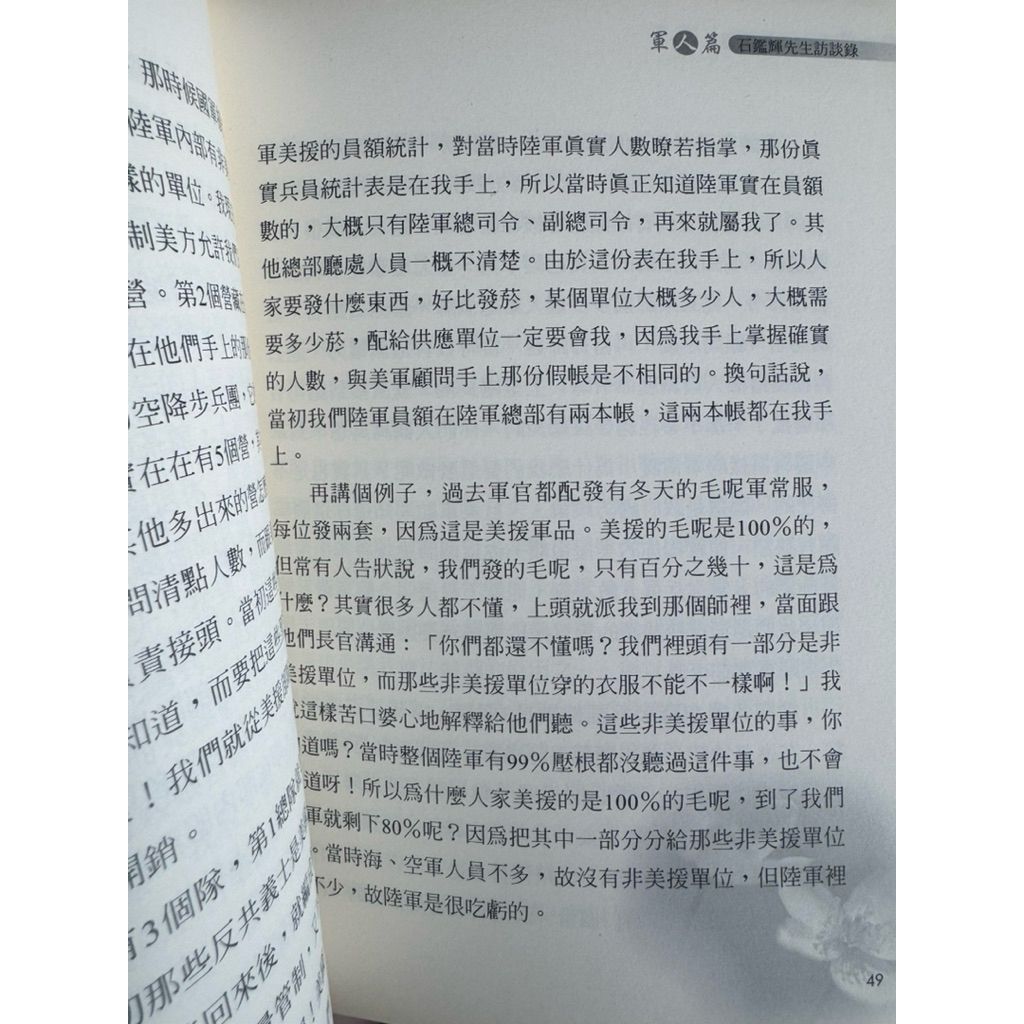 那時候國軍
陸軍內部有
樣的單位。我
制美方允許我們
營。第2個營藏在
在他們手上的那
空降步兵團，它
實在在有5個營，其
其他多出來的營怎
問清點人數，而
責接頭。當初這
知道，而要把這
！我們就從美援
開銷。
有3個隊，第1總隊
那些反共義士是
回來後，就編
量管制，
軍人篇 石鑑輝先生訪談錄
軍美援的員額統計，對當時陸軍眞實人數瞭若指掌，那份眞
實兵員統計表是在我手上，所以當時眞正知道陸軍實在員額
數的，大概只有陸軍總司令、副總司令，再來就屬我了。其
他總部廳處人員一概不清楚。由於這份表在我手上，所以人
家要發什麼東西，好比發菸，某個單位大概多少人，大概需
要多少菸，配給供應單位一定要會我，因爲我手上掌握確實
的人數，與美軍顧問手上那份假帳是不相同的。換句話說，
當初我們陸軍員額在陸軍總部有兩本帳，這兩本帳都在我手
上。
再講個例子，過去軍官都配發有冬天的毛呢軍常服，
每位發兩套，因爲這是美援軍品。美援的毛呢是100%的，
但常有人告狀說，我們發的毛呢，只有百分之幾十，這是爲
什麼？其實很多人都不懂，上頭就派我到那個師裡，當面跟
他們長官溝通：「你們都還不懂嗎？我們裡頭有一部分是非
美援單位，而那些非美援單位穿的衣服不能不一樣啊！」我
就這樣苦口婆心地解釋給他們聽。這些非美援單位的事，你
道嗎？當時整個陸軍有99%壓根都沒聽過這件事，也不會
道呀！所以爲什麼人家美援的是100%的毛呢，到了我們
軍就剩下80%呢？因爲把其中一部分分給那些非美援單位
。當時海、空軍人員不多，故沒有非美援單位，但陸軍裡
不少，故陸軍是很吃虧的。
49